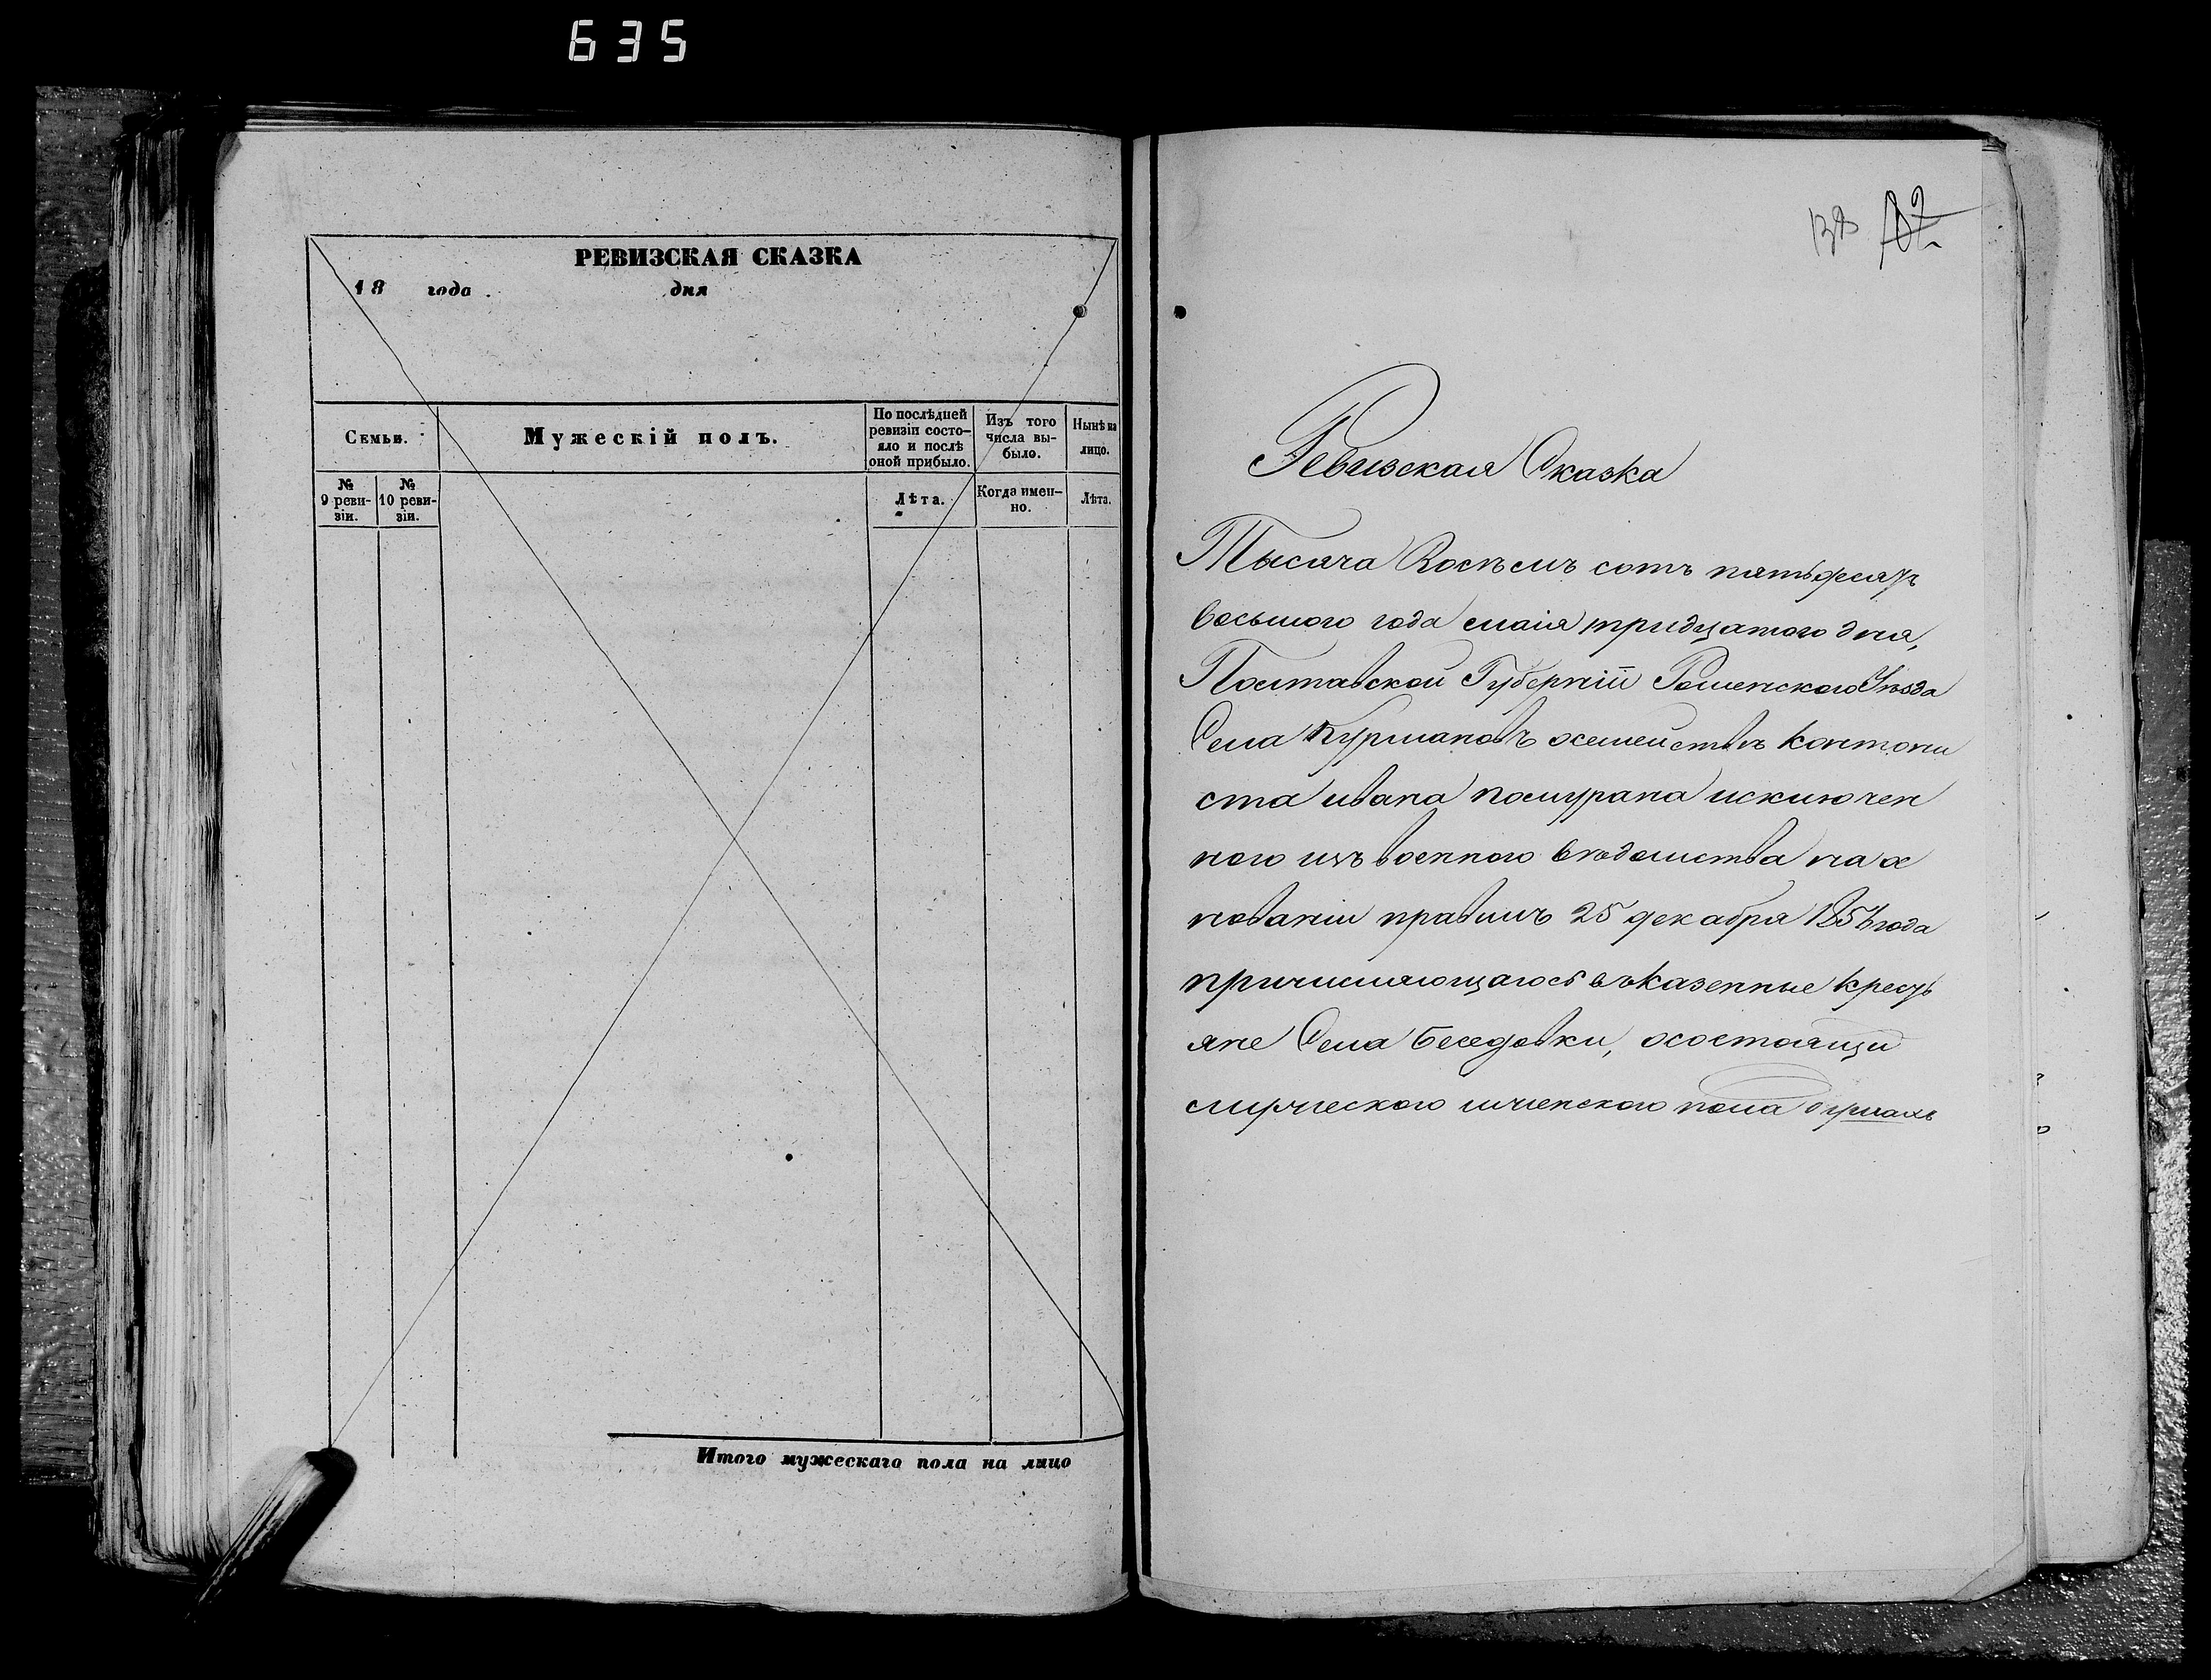 635
РЕВИЗСКАЯ СКАЗКА
18 года дня
Семьи.
Мужескій полъ.
По послѣдней ревизіи состо-яло и послѣ оной прибыло.
Изъ того числа вы-было.
Нынѣ на лицо.
№ 9 реви-зіи.
№ 10 реви-зіи.
Лѣта.
Когда имен-но.
Лѣта.
Итого мужескаго пола на лицо
Ревизская Сказка
Тысяча Восѣмъ сотъ пятьдесятъ
восьмого года маія тридцатого дня,
Полтавской Губерніи Роменского Уѣзда
Села Курмановъ осемействѣ Контони
ста ивана полурана исключен
ного изъ военного вѣдомства на ос
нованіи правилъ 25 декабря 1856 года
причисляющагось въ казенные кресть
яне Села Беседовки, осостоящи
мужеского иженского пола душахъ